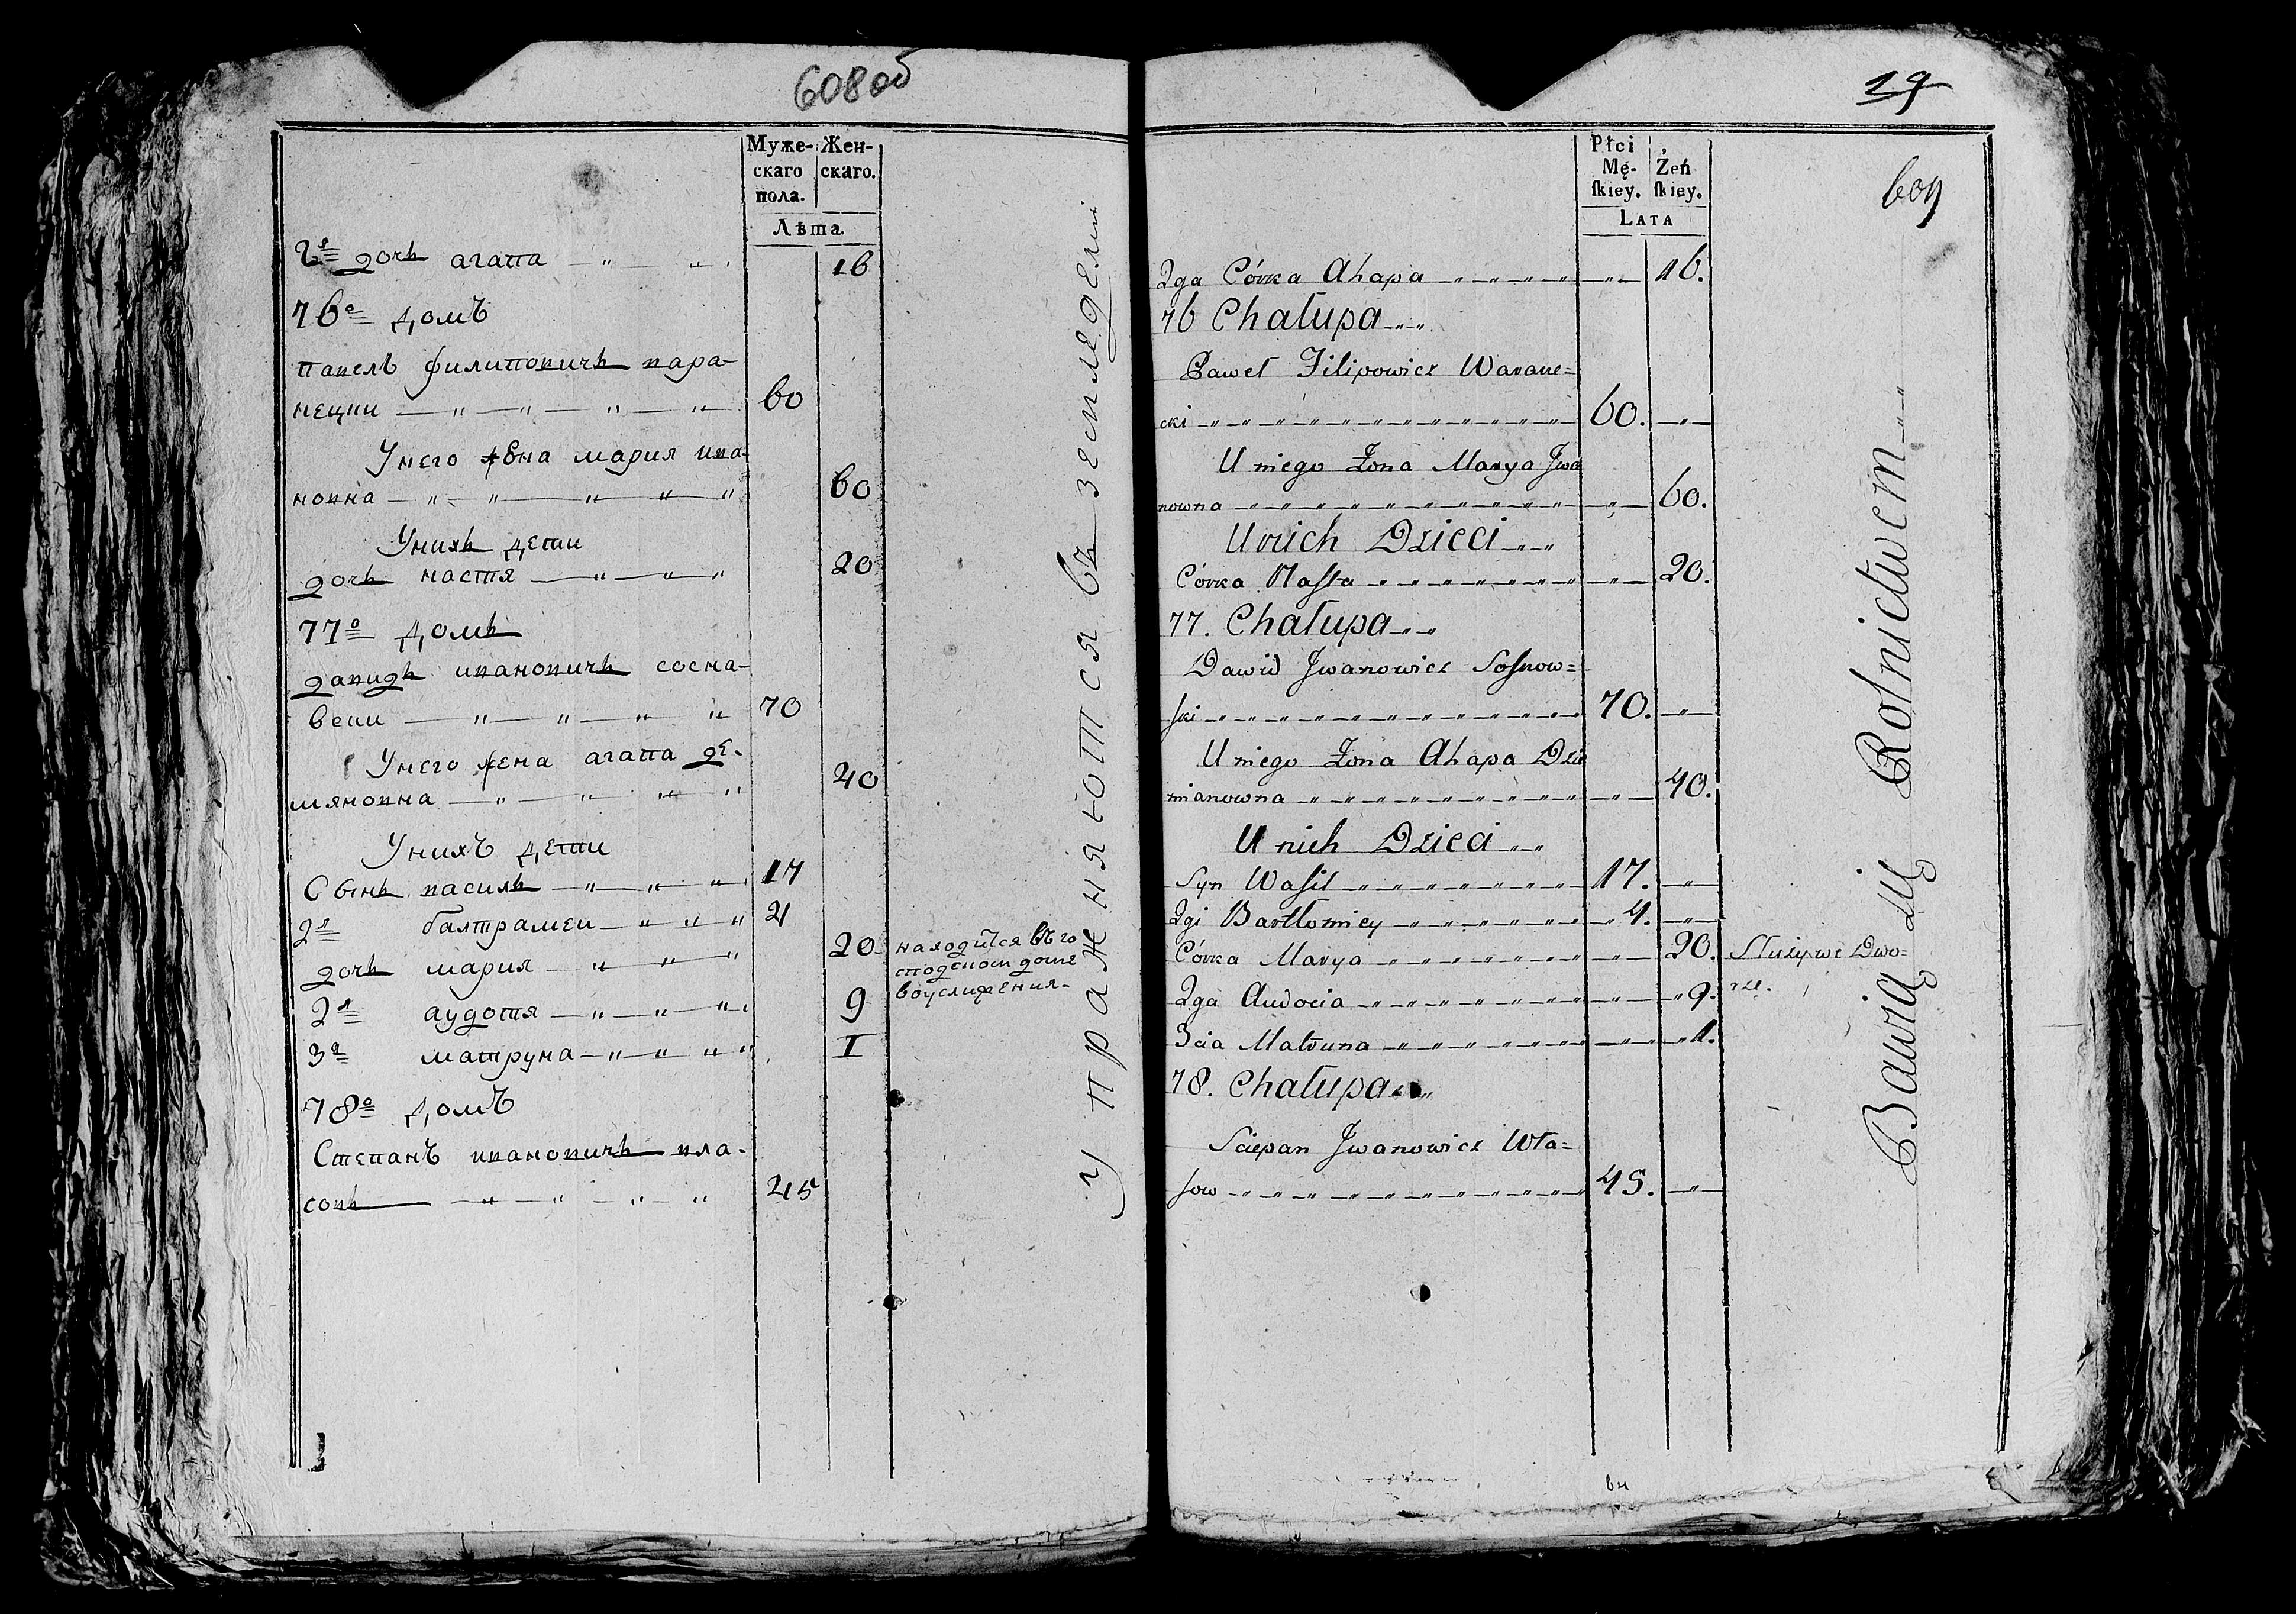 608 об
Муже-
скаго
пола.
Жен-
скаго.
Лѣта.
2я дочь агапа 16
76е домъ
павелъ филиповичъ вара-
нецки 60
Унего жена мария ива-
новна 60
Унихъ дети
дочь настя 20
77о домъ
давидъ ивановичъ сосна-
вски 70
Унего жена агапа де-
мяновна 40
Унихъ дети
Сынъ василь 17
2й балтрамеи 4
дочь мария 20 находится въ го
сподском доме
2я аудотя 9 воуслижения
3я матруна 1
78о домъ
Степанъ ивановичъ вла-
совъ 45
Упражняются въ земледелиі
19
609
Płci
Mę-
skiey.
Żeń
skiey.
LATA
2ga Córka Ahapa „ 16.
76 Chałupa „
Paweł Filipowicz Warane=
cki „ 60. „
U niego Żona Marya Jwa
nowna „ 60.
U nich Dzieci „
Córka Nasta „ 20.
77. Chałupa „
Dawid Jwanowicz Sosnow=
ski „ 70. „
U niego Żona Ahapa Dzie
mianowna „ 40.
U nich Dzieci „
Syn Wasil „ 17. „
2gi Bartłomiey „ 4. „
Córka Marya „ 20. Służy we Dwo=
2ga Audocia „ 9. rze.
3cia Matruna „ 1.
78. Chałupa „
Sciepan Jwanowicz Wła=
sow „ 45. „
Bawią się Rolnictwem